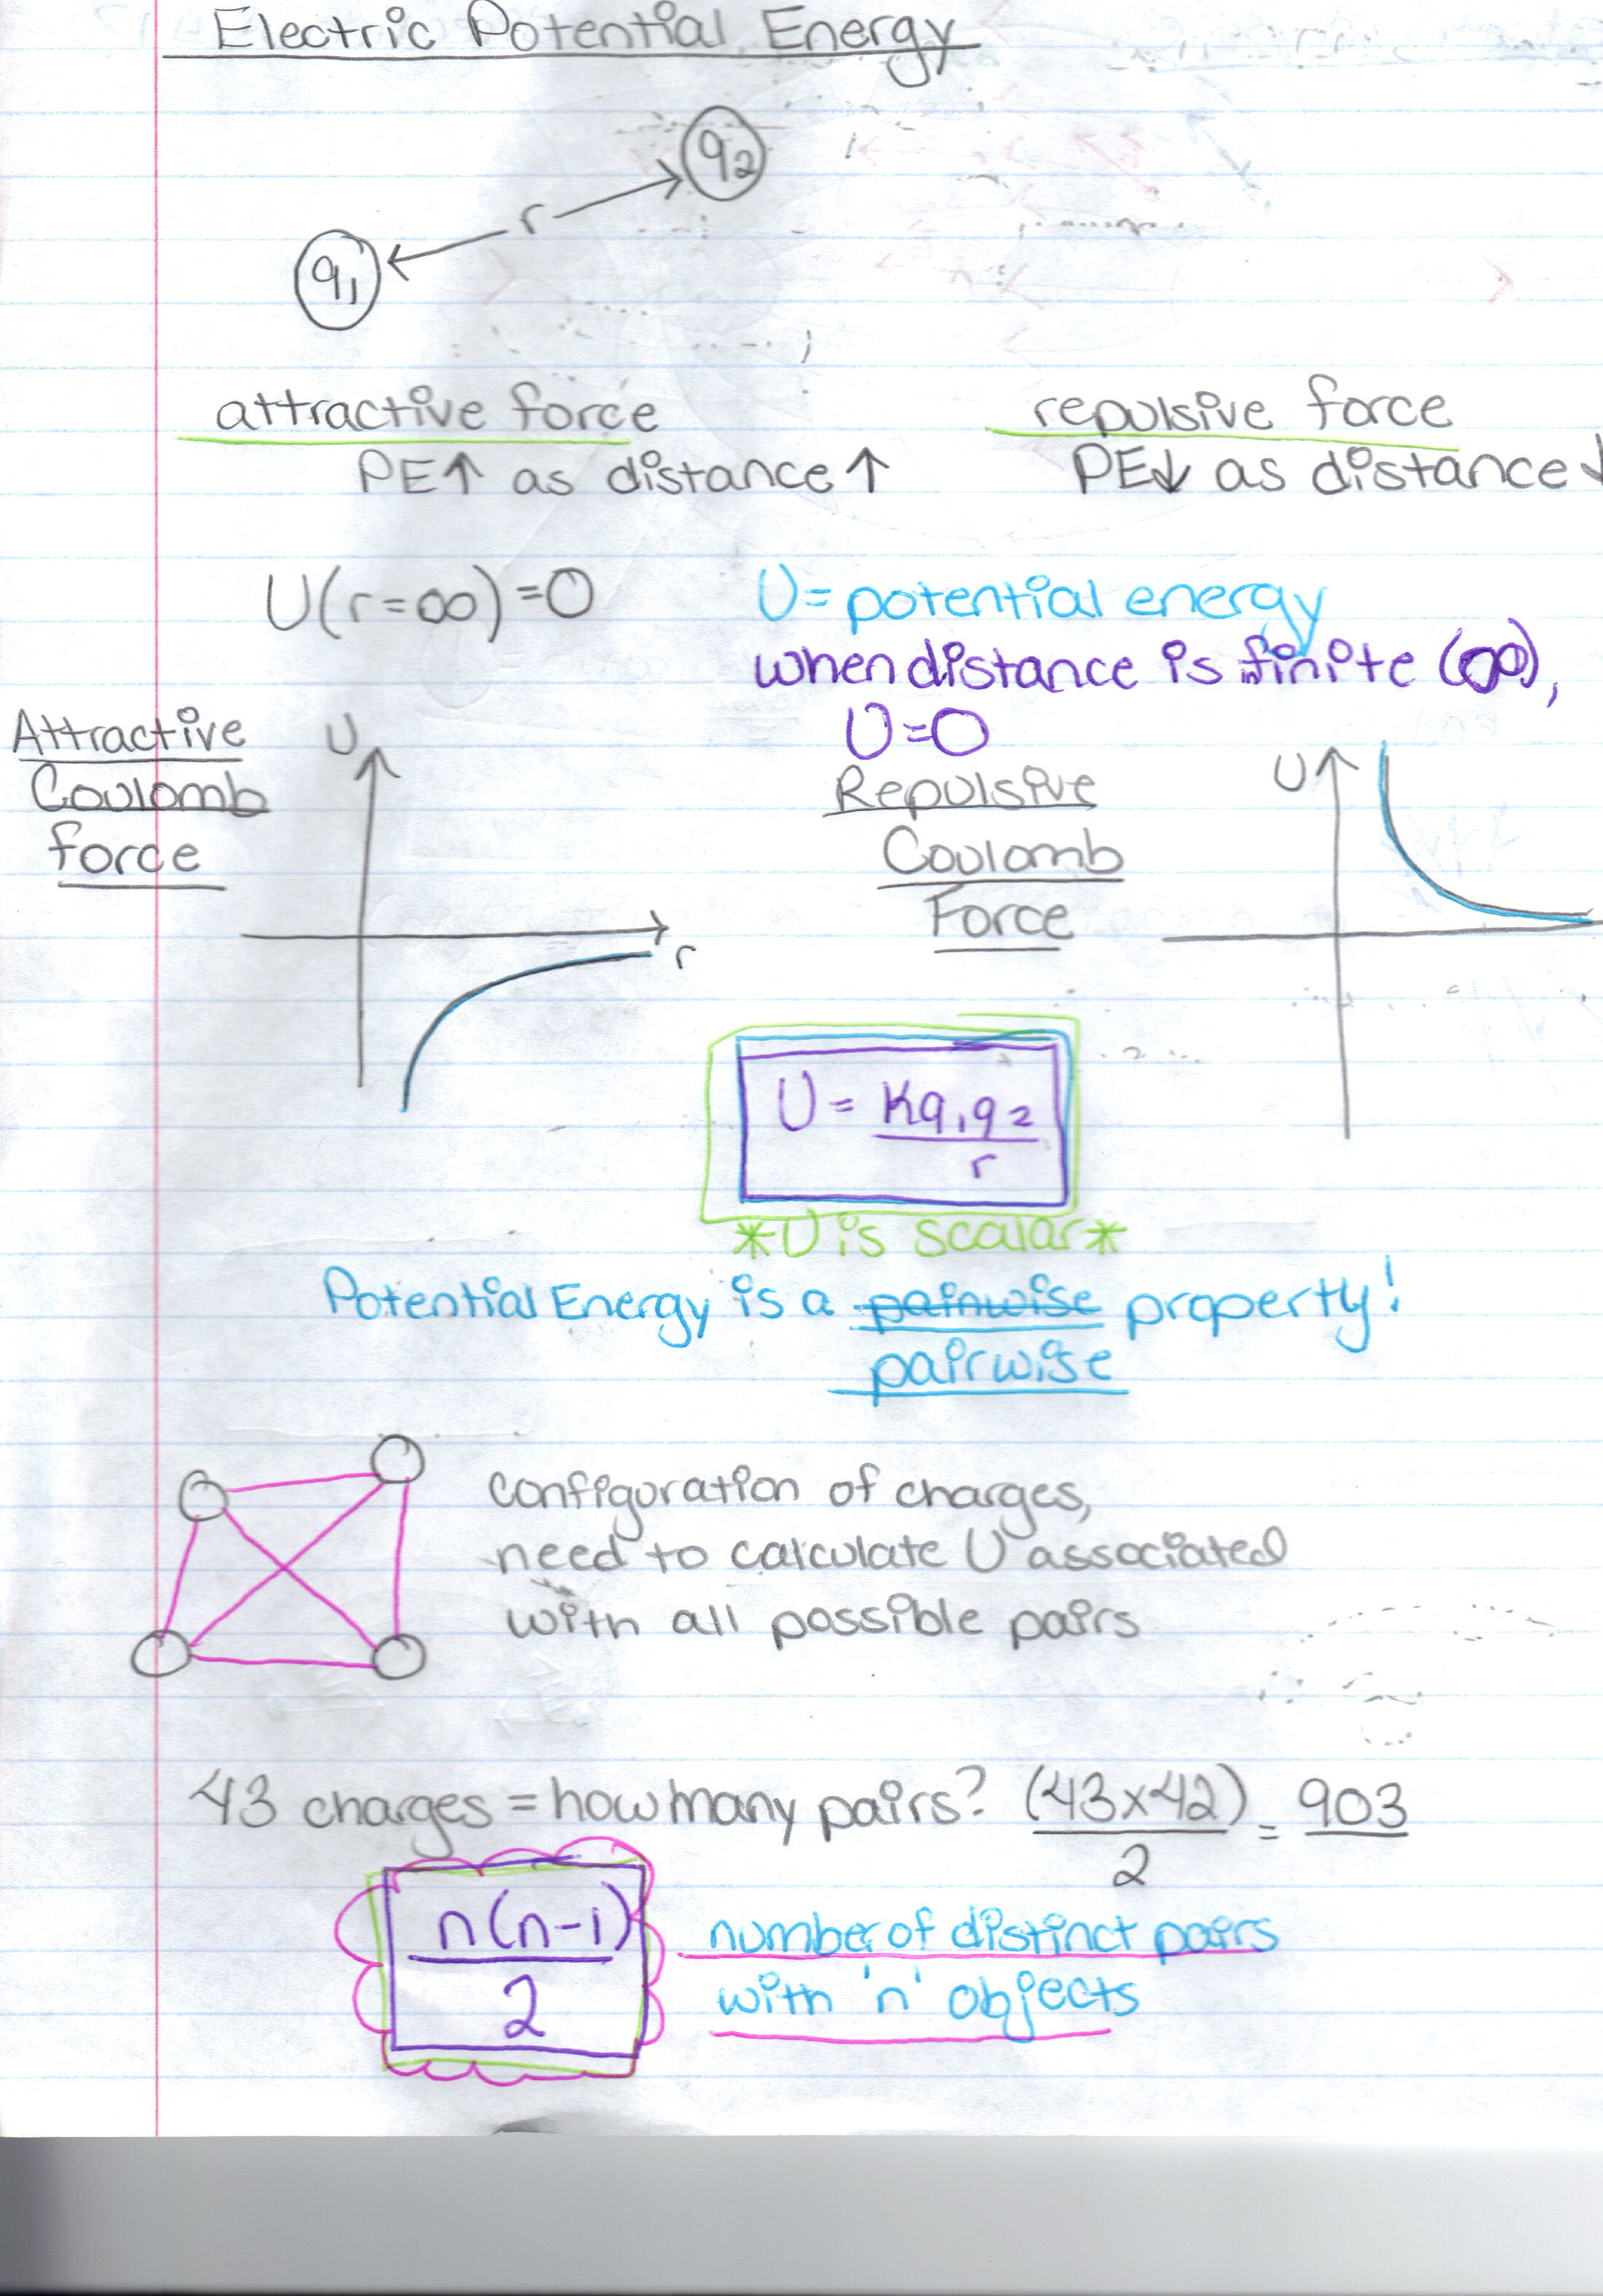 Electric Potential Energy
q2
r
q1
attractive force
repulsive force
PE↑ as distance ↑
PE↓ as distance ↓
U(r=∞)=0
U= potential energy
when distance is infinite (∞),
U=0
Attractive
Coulomb
force
U
r
Repulsive
Coulomb
Force
U
U = Kq1q2
r
*U is scalar*
Potential Energy is a painwise property!
pairwise
configuration of charges,
need to calculate U associated
with all possible pairs
43 charges = how many pairs? (43x42) = 903
2
n(n-1)
2
number of distinct pairs
with 'n' objects